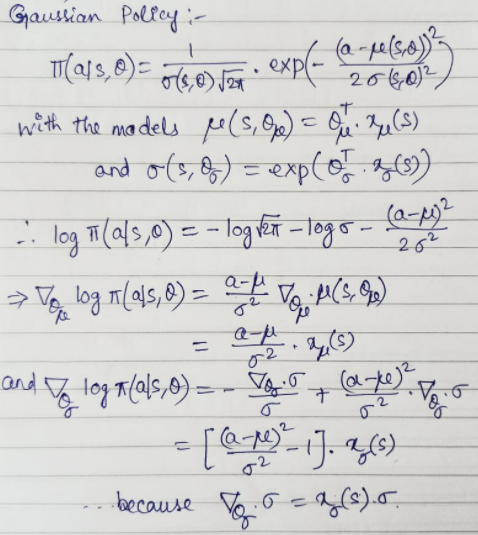 Gaussian Policy :-
π(a|s,θ) = 1/(σ(s,θ)√2π) · exp(- (a-μ(s,θ))²/(2σ(s,θ)²))
with the models μ(s,θ_μ) = θ_μ^T · x_μ(s)
and σ(s,θ_σ) = exp(θ_σ^T · x_σ(s))
∴ log π(a|s,θ) = - log√2π - logσ - (a-μ)²/(2σ²)
⇒ ∇_θ_μ log π(a|s,θ) = (a-μ)/σ² ∇_θ_μ · μ(s,θ_μ)
= (a-μ)/σ² · x_μ(s)
and ∇_θ_σ log π(a|s,θ) = - (∇_θ_σ · σ)/σ + (a-μ)²/σ² · ∇_θ_σ · σ
= [(a-μ)²/σ² - 1] · x_σ(s)
... because ∇_θ_σ · σ = x_σ(s) · σ.